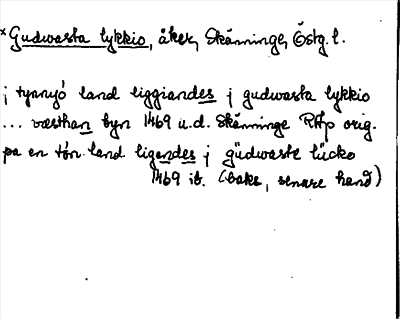 *Gudwasta lykkio, åker, Skänninge, Östg. l.
j tyanyó land liggiandes j gudwasta lykkio
... væsthan byn 1469 u.d. Skänninge RAp orig.
pa en tón. land ligendes j güdwaste lücko
1469 ib. (baks, senare hand)